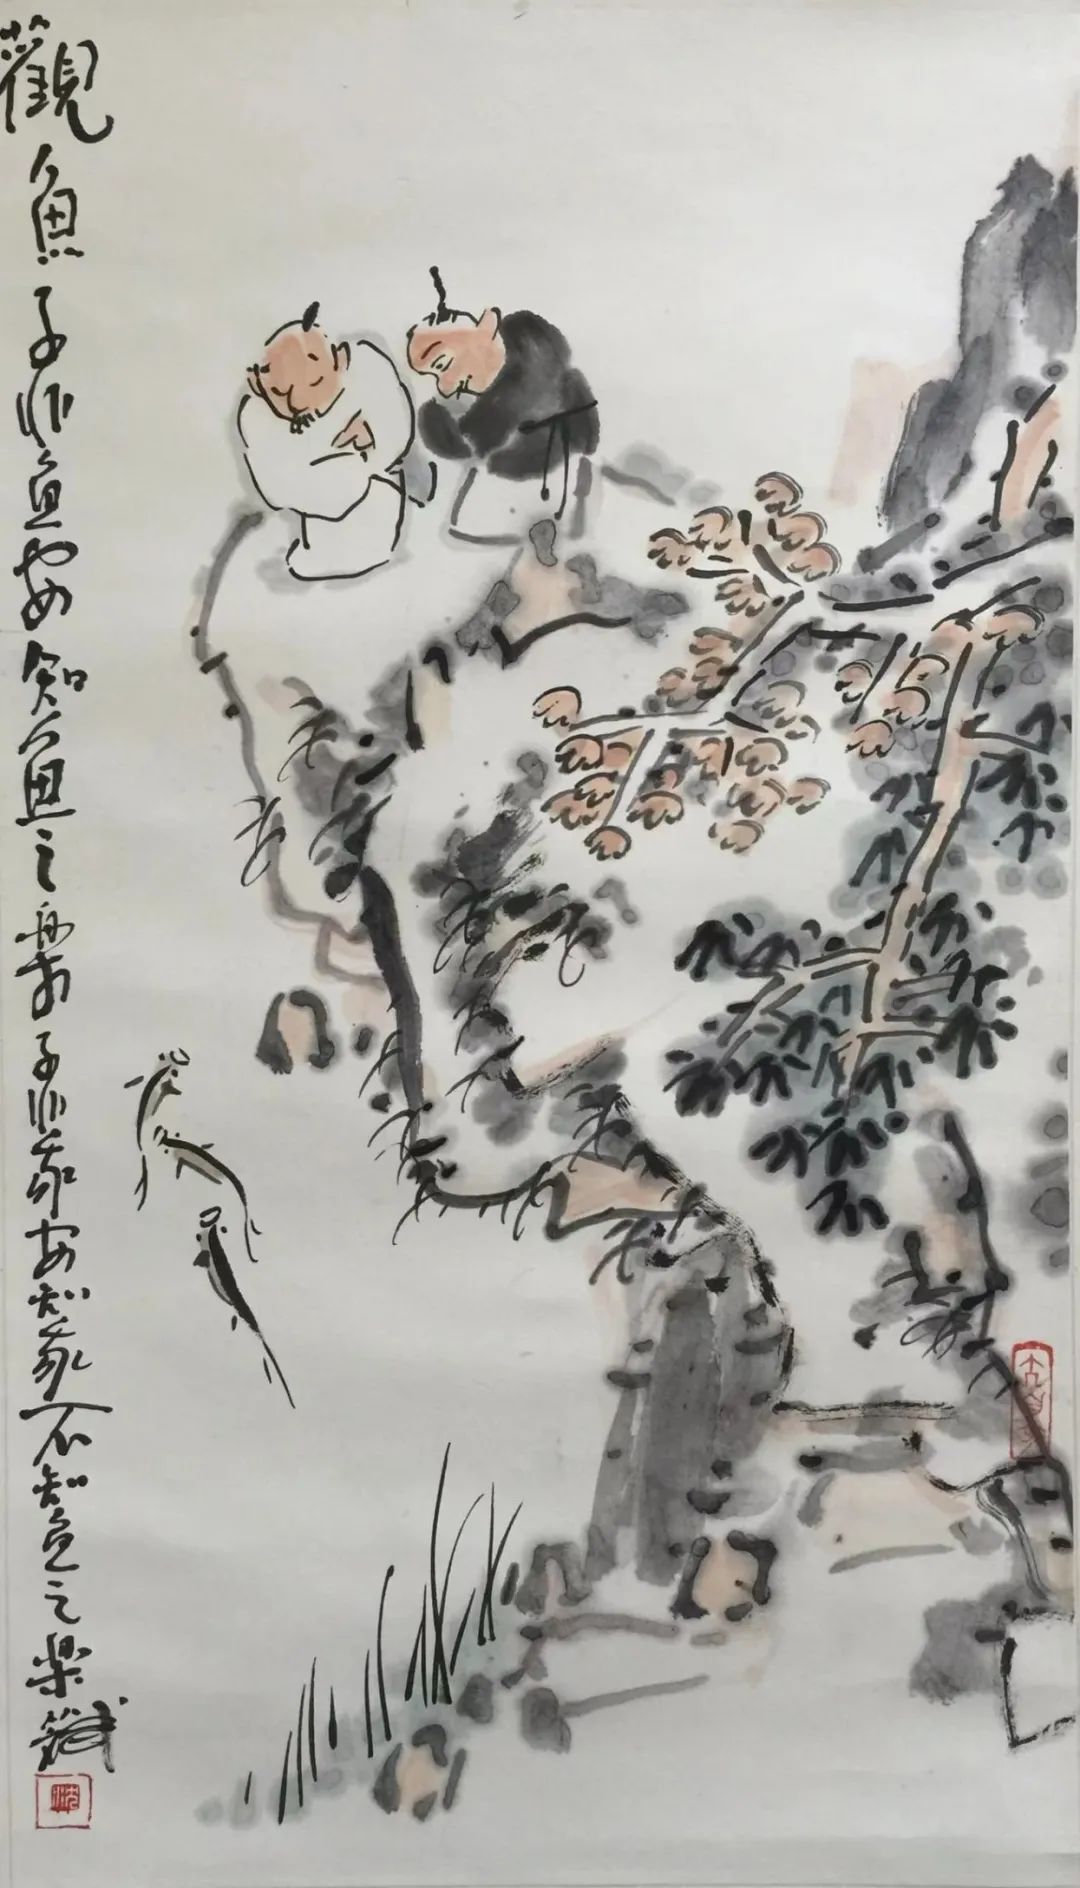 觀魚子非魚安知魚之樂子非我安知我不知魚之樂